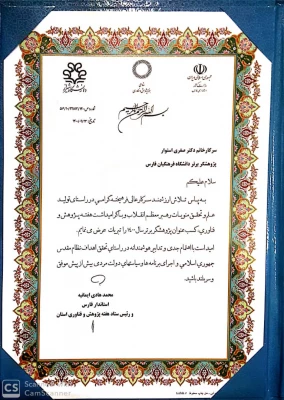 بسم الله الرحمن الرحیم
سرکار خانم دکتر صغری استوار
پژوهشگر برتر دانشگاه فرهنگیان فارس
سلام علیکم
به پاس تلاش ارزشمند سرکارعالی فرهیخته گرامی در راستای تولید
علم و تحقق منویات رهبر معظم انقلاب و با گرامیداشت هفته پژوهش و
فناوری، کسب عنوان پژوهشگر برتر سال ۱۴۰۰ را تبریک عرض می نمایم.
امید است با اهتمام جدی و تدابیر هوشمندانه در راستای تحقق اهداف نظام مقدس
جمهوری اسلامی و اجرای برنامه ها و سیاستهای دولت مردمی بیش از پیش موفق
و سربلند باشید.
محمد هادی ایمانیه
استاندار فارس
و رئیس ستاد هفته پژوهش و فناوری استان
CS
CamScanner